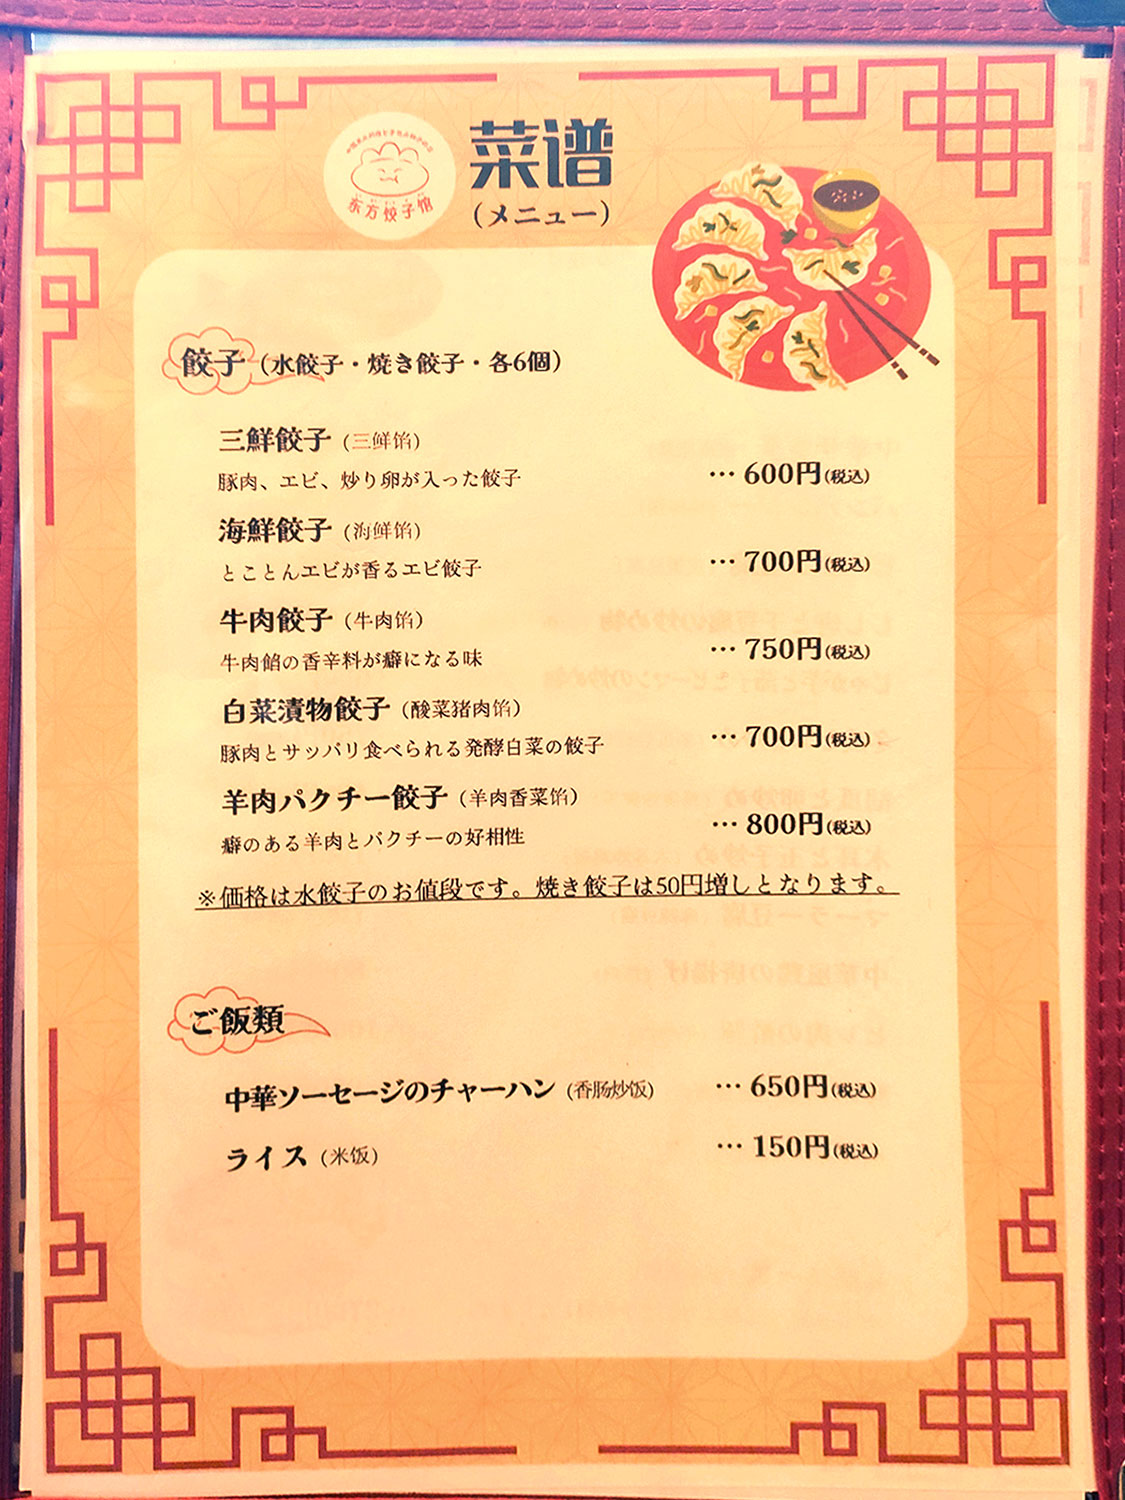 菜谱
(メニュー)
东方饺子馆
餃子(水餃子・焼き餃子・各6個)
三鮮餃子(三鲜馅)
豚肉、エビ、炒り卵が入った餃子
… 600円(税込)
海鮮餃子(海鲜馅)
とことんエビが香るエビ餃子
… 700円(税込)
牛肉餃子(牛肉馅)
牛肉餡の香辛料が癖になる味
… 750円(税込)
白菜漬物餃子(酸菜猪肉馅)
豚肉とサッパリ食べられる発酵白菜の餃子
… 700円(税込)
羊肉パクチー餃子(羊肉香菜馅)
癖のある羊肉とパクチーの好相性
… 800円(税込)
※価格は水餃子のお値段です。焼き餃子は50円増しとなります。
ご飯類
中華ソーセージのチャーハン(香肠炒饭) … 650円(税込)
ライス(米饭) … 150円(税込)